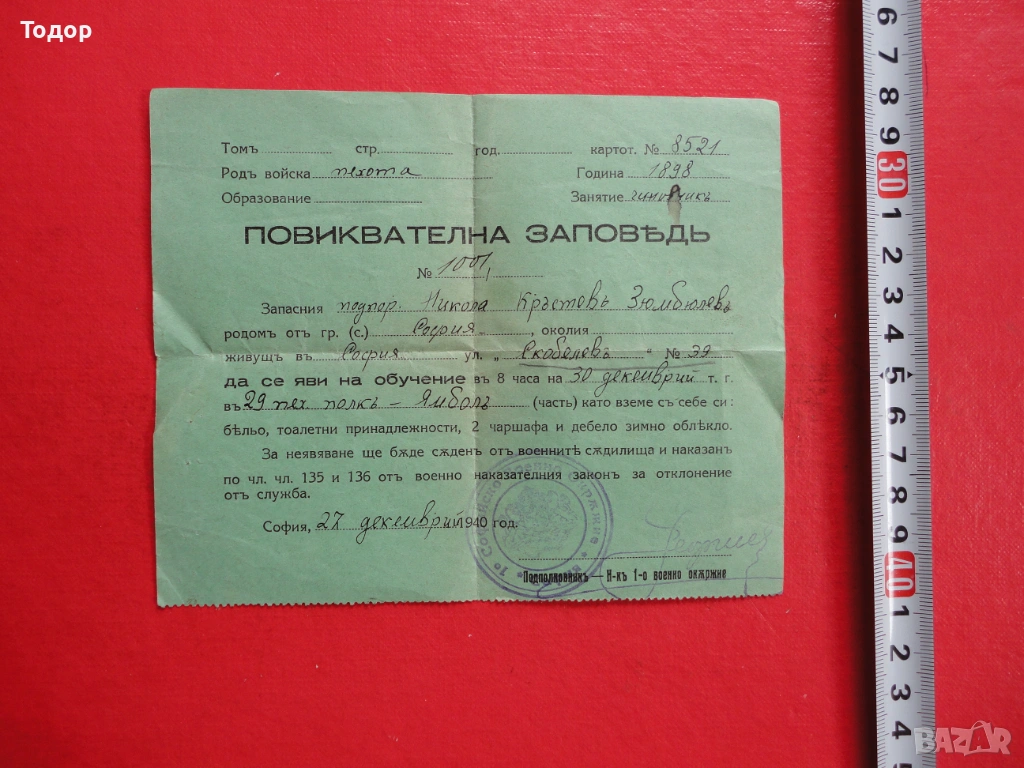 Тодор
Томъ стр. год. картот. № 8521
Родъ войска пехота Година 1898
Образование Занятие чиновникъ
ПОВИКВАТЕЛНА ЗАПОВѢДЬ
№ 1001
Запасния подпор. Никола Кръстевъ Зюмбюлевъ
родомъ отъ гр. (с.) София, околия
живущъ въ София ул. „Скобелевъ“ № 39
да се яви на обучение въ 8 часа на 30 декемврий т. г.
въ 29 пех. полкъ – Ямболъ (часть) като вземе съ себе си:
бѣльо, тоалетни принадлежности, 2 чаршафа и дебело зимно облѣкло.
За неявяване ще бѫде сѫденъ отъ военнитѣ сѫдилища и наказанъ
по чл. чл. 135 и 136 отъ военно наказателния законъ за отклонение
отъ служба.
София, 27 декемврий 1940 год.
Подполковникъ — Н-къ 1-о военно окѫржие
6 7 8 9 30 1 2 3 4 5 6 7 8 9 40 1 2 3 4 5
BAZAR